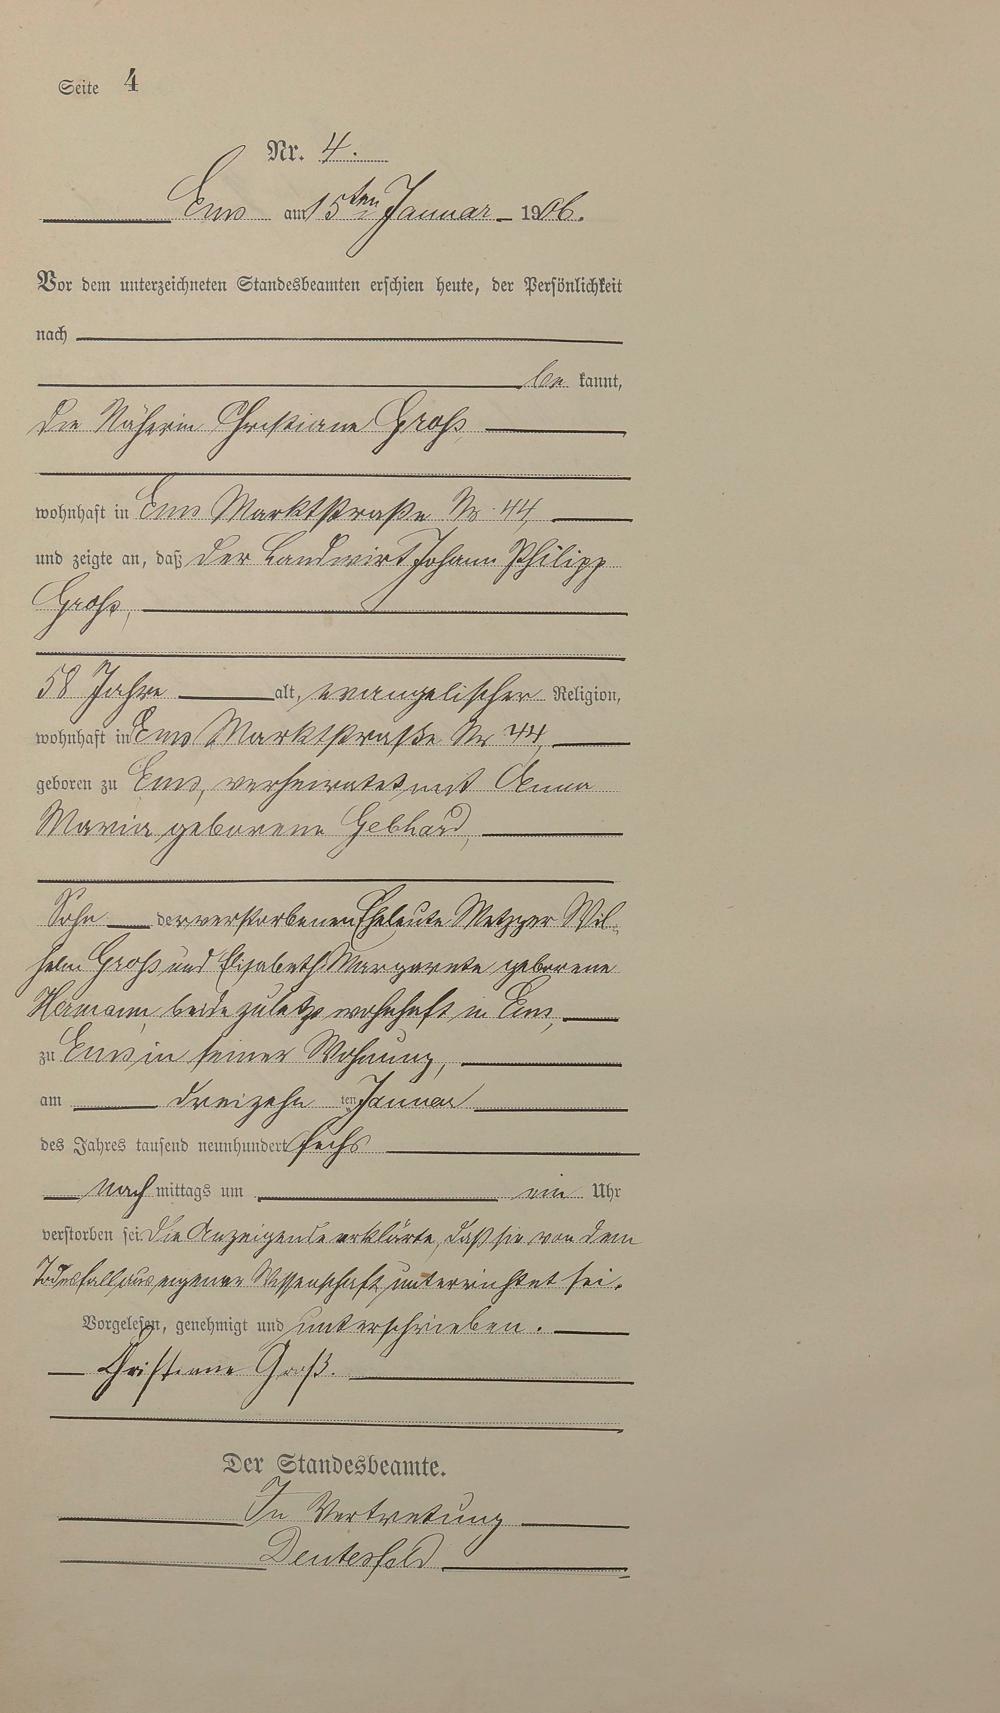 Seite 4
Nr. 4.
Ems am 15ten Januar 1906.
Vor dem unterzeichneten Standesbeamten erschien heute, der Persönlichkeit
nach
be kannt,
die Näherin Christiane Groß,
wohnhaft in Ems Marktstraße Nr. 44,
und zeigte an, daß der Landwirt Johann Philipp
Groß,
58 Jahre alt, evangelischer Religion,
wohnhaft in Ems Marktstraße Nr 44,
geboren zu Ems, verheiratet mit Anna
Maria geborene Gebhard,
Sohn der verstorbenen Eheleute Metzger Wil-
helm Groß und Elisabeth Margarete geborene
Hermann, beide zuletzt wohnhaft in Ems,
zu Ems in seiner Wohnung,
am dreizehn ten Januar
des Jahres tausend neunhundert sechs
nach mittags um ein Uhr
verstorben sei. Die Anzeigende erklärte, daß sie von dem
Todesfall aus eigener Wissenschaft unterrichtet sei.
Vorgelesen, genehmigt und unterschrieben.
Christiane Groß.
Der Standesbeamte.
In Vertretung
Deutesfeld